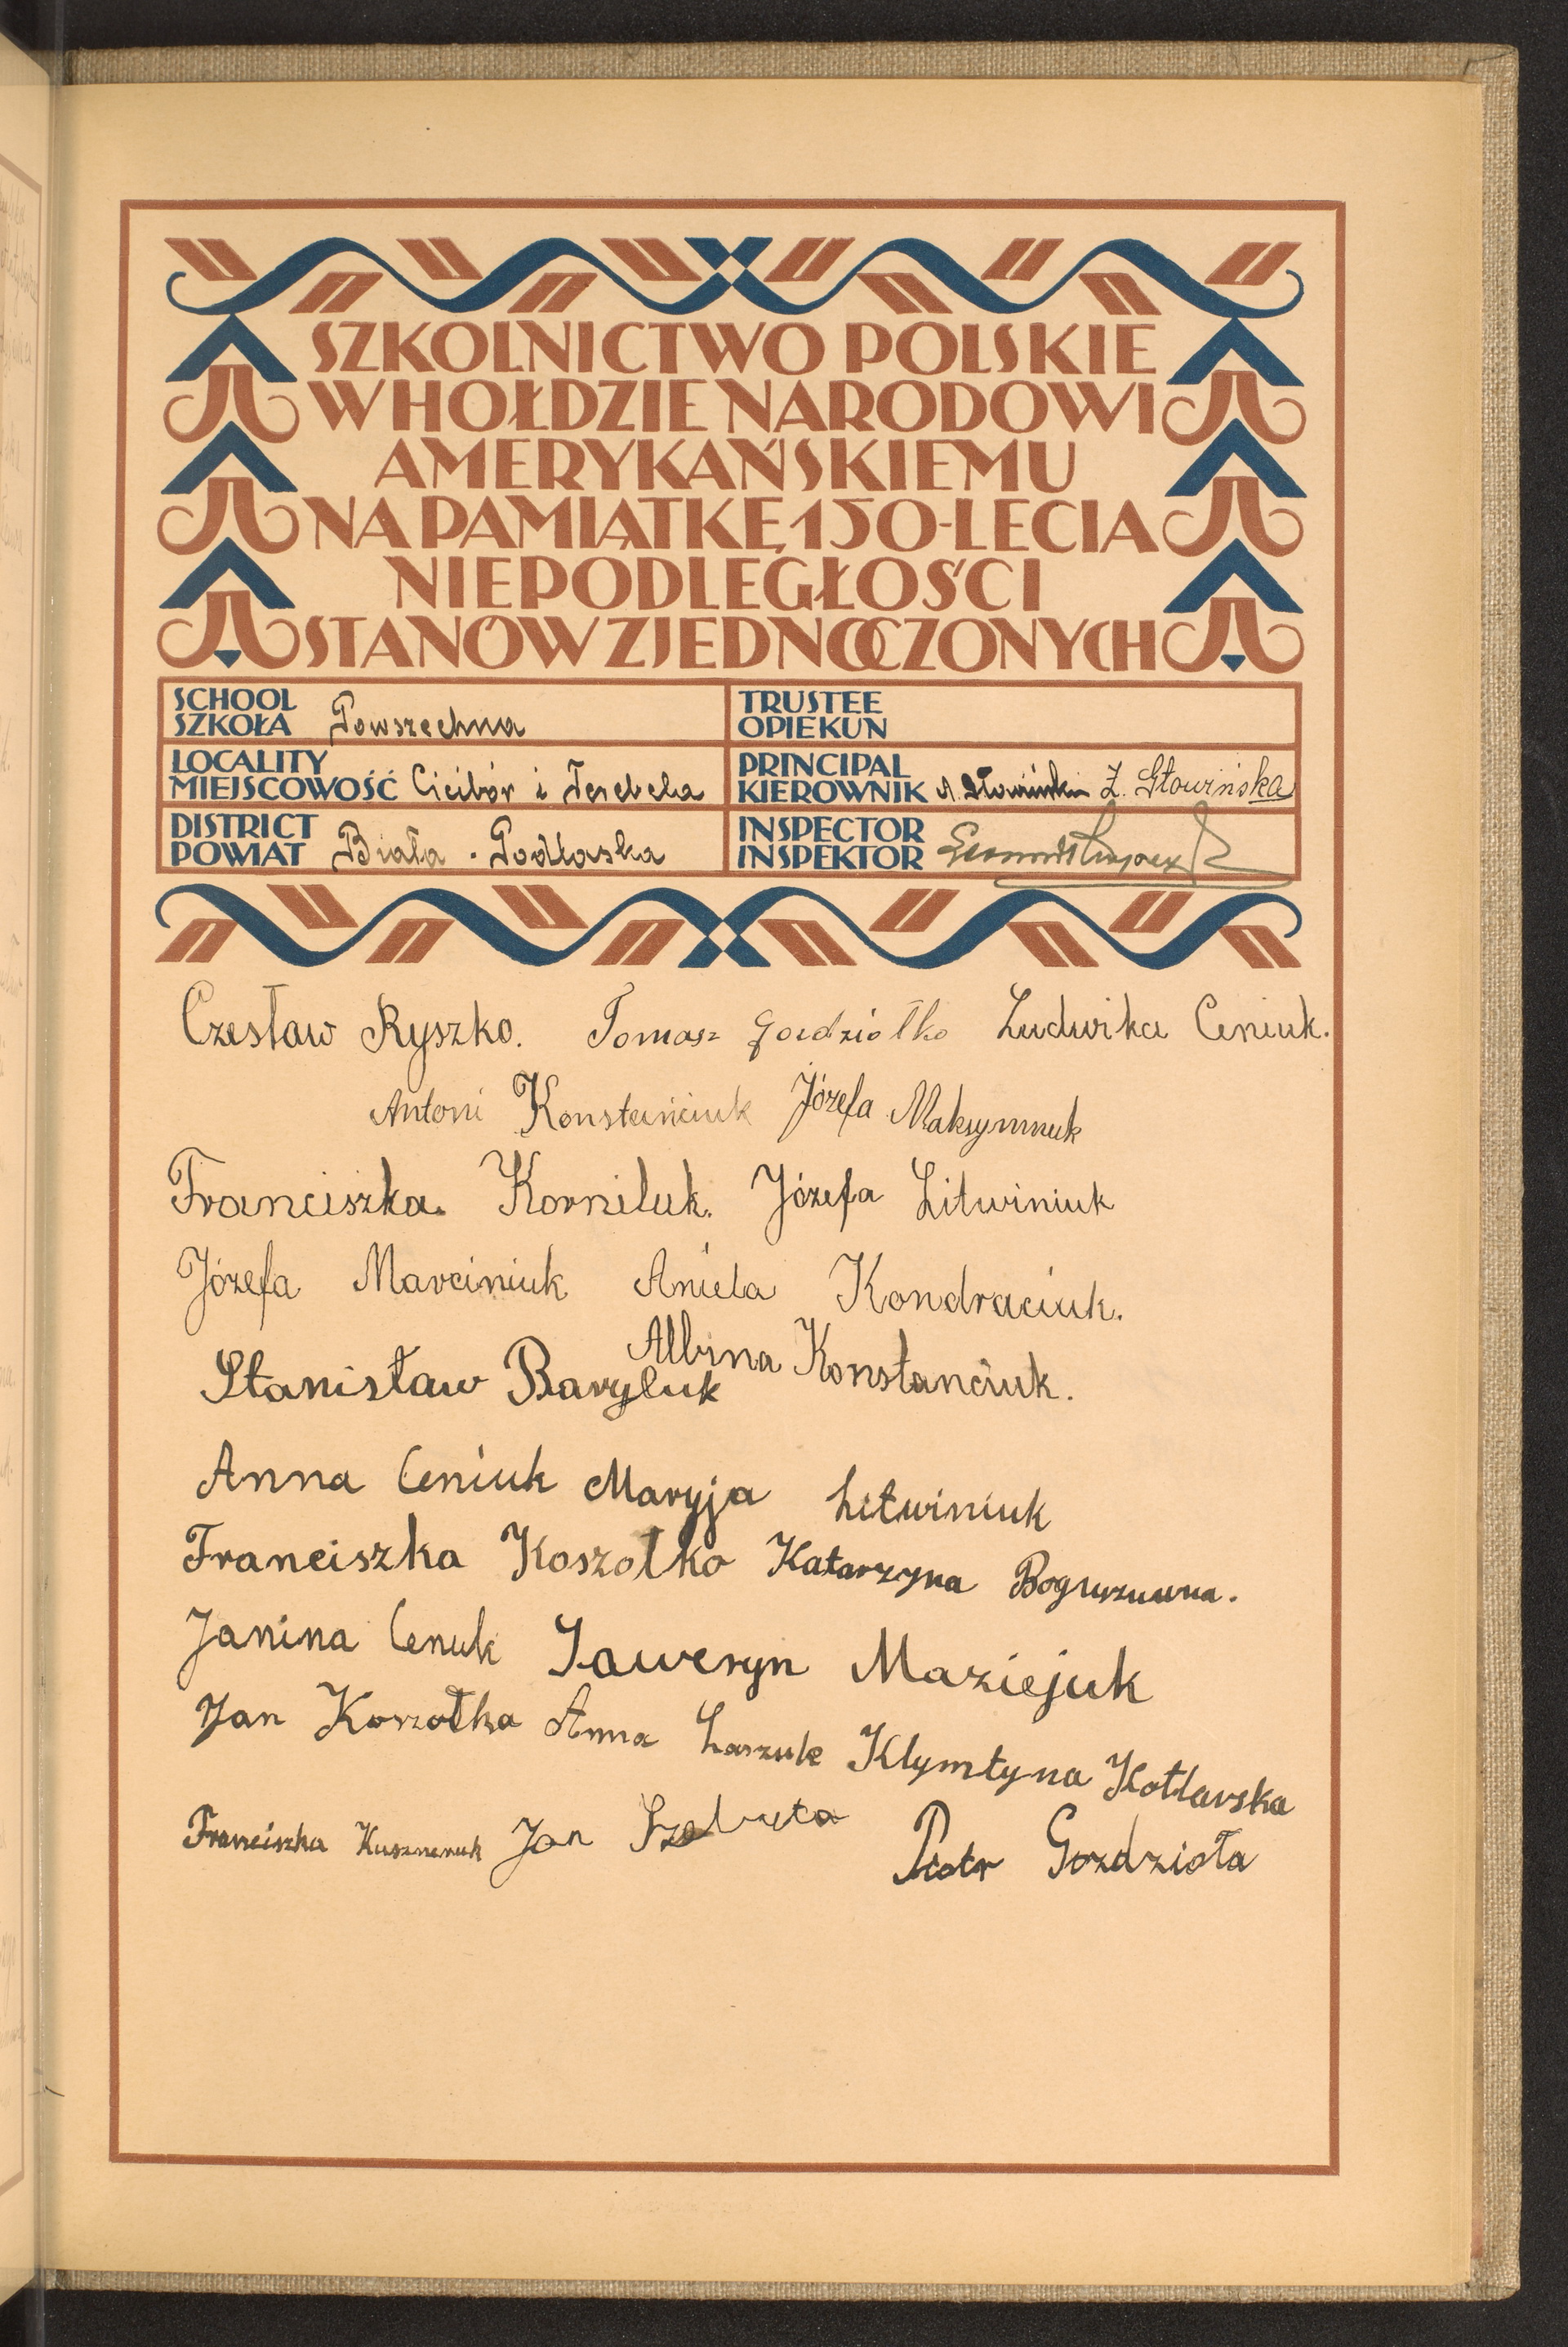 SZKOLNICTWO POLSKIE
W HOŁDZIE NARODOWI
AMERYKAŃSKIEMU
NA PAMIĄTKĘ 150-LECIA
NIEPODLEGŁOŚCI
STANÓW ZJEDNOCZONYCH
SCHOOL
SZKOŁA Powszechna
TRUSTEE
OPIEKUN
LOCALITY
MIEJSCOWOŚĆ Cicibór i Terebela
PRINCIPAL
KIEROWNIK A. Słowiński Z. Słowińska
DISTRICT
POWIAT Biała - Podlaska
INSPECTOR
INSPEKTOR
Czesław Ryszko. Tomasz Goździołko Ludwika Ceniuk.
Antoni Konstańciuk Józefa Maksymiuk
Franciszka Korniluk. Józefa Litwiniuk
Józefa Marciniuk Aniela Kondraciuk.
Albina Konstanciuk.
Stanisław Baryluk
Anna Ceniuk Maryja Litwiniuk
Franciszka Koszołko Katarzyna
Janina Cenuk Saweryn Maziejuk
Jan Koszołka Anna Łaszuk Klymtyna Kotlarska
Franciszka Kuszneruk Jan
Piotr Gozdzioła